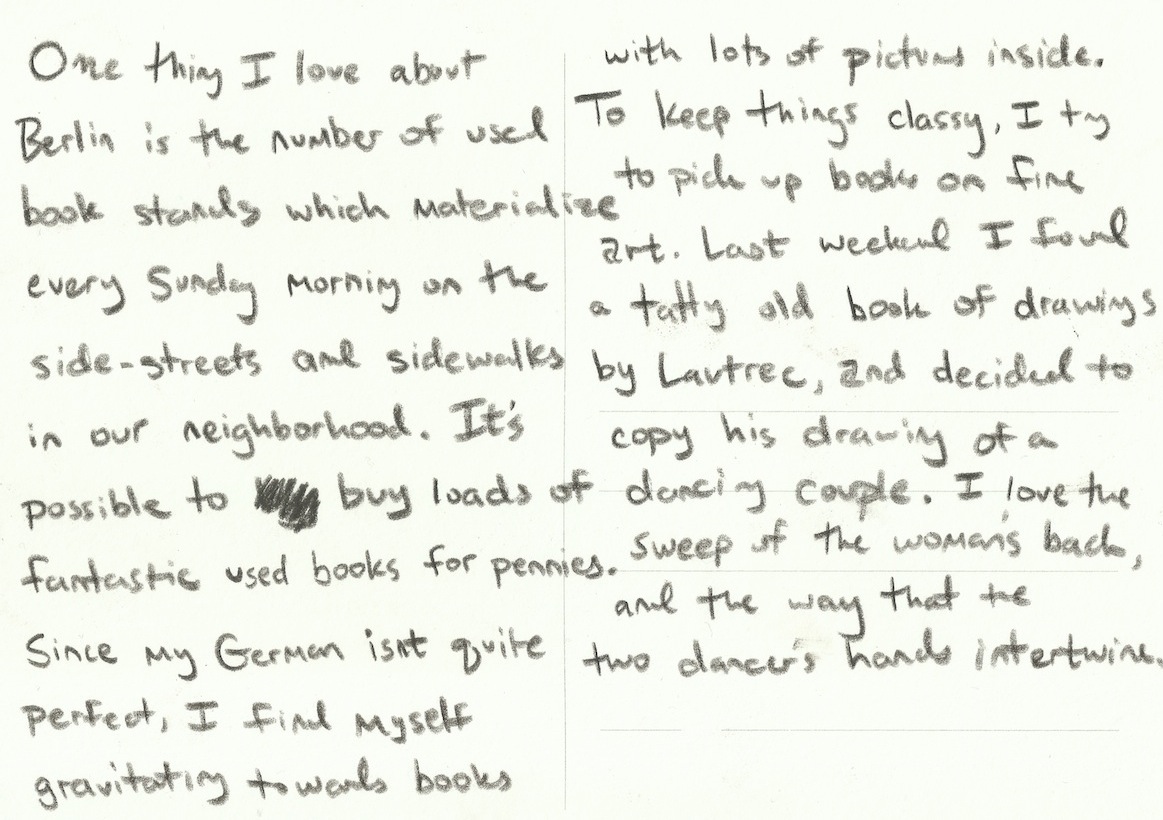 One thing I love about
Berlin is the number of used
book stands which materialize
every Sunday morning on the
side-streets and sidewalks
in our neighborhood. It's
possible to buy loads of
fantastic used books for pennies.
Since my German isnt quite
perfect, I find myself
gravitating towards books
with lots of pictures inside.
To keep things classy, I try
to pick up books on fine
art. Last weekend I found
a tatty old book of drawings
by Lautrec, and decided to
copy his drawing of a
dancing couple. I love the
sweep of the woman's back,
and the way that the
two dancer's hands intertwine.